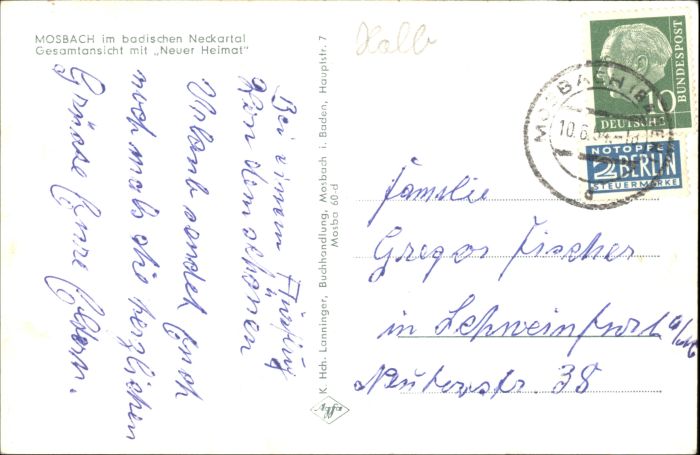 MOSBACH im badischen Neckartal
Gesamtansicht mit „Neuer Heimat“
Bei einem
dem schönen
Urlaub sendet Euch
noch mals die herzlichen
Grüsse Eure Eltern.
K. Hch. Lanninger, Buchhandlung, Mosbach i. Baden, Hauptstr. 7
Mosba 60-d
Halb
10
DEUTSCHE
BUNDESPOST
MOSBACH (BADEN)
10.6.54
a
NOTOPFER
2 BERLIN
STEUERMARKE
Familie
Gregor Fischer
in Schweinfurt a/M
38